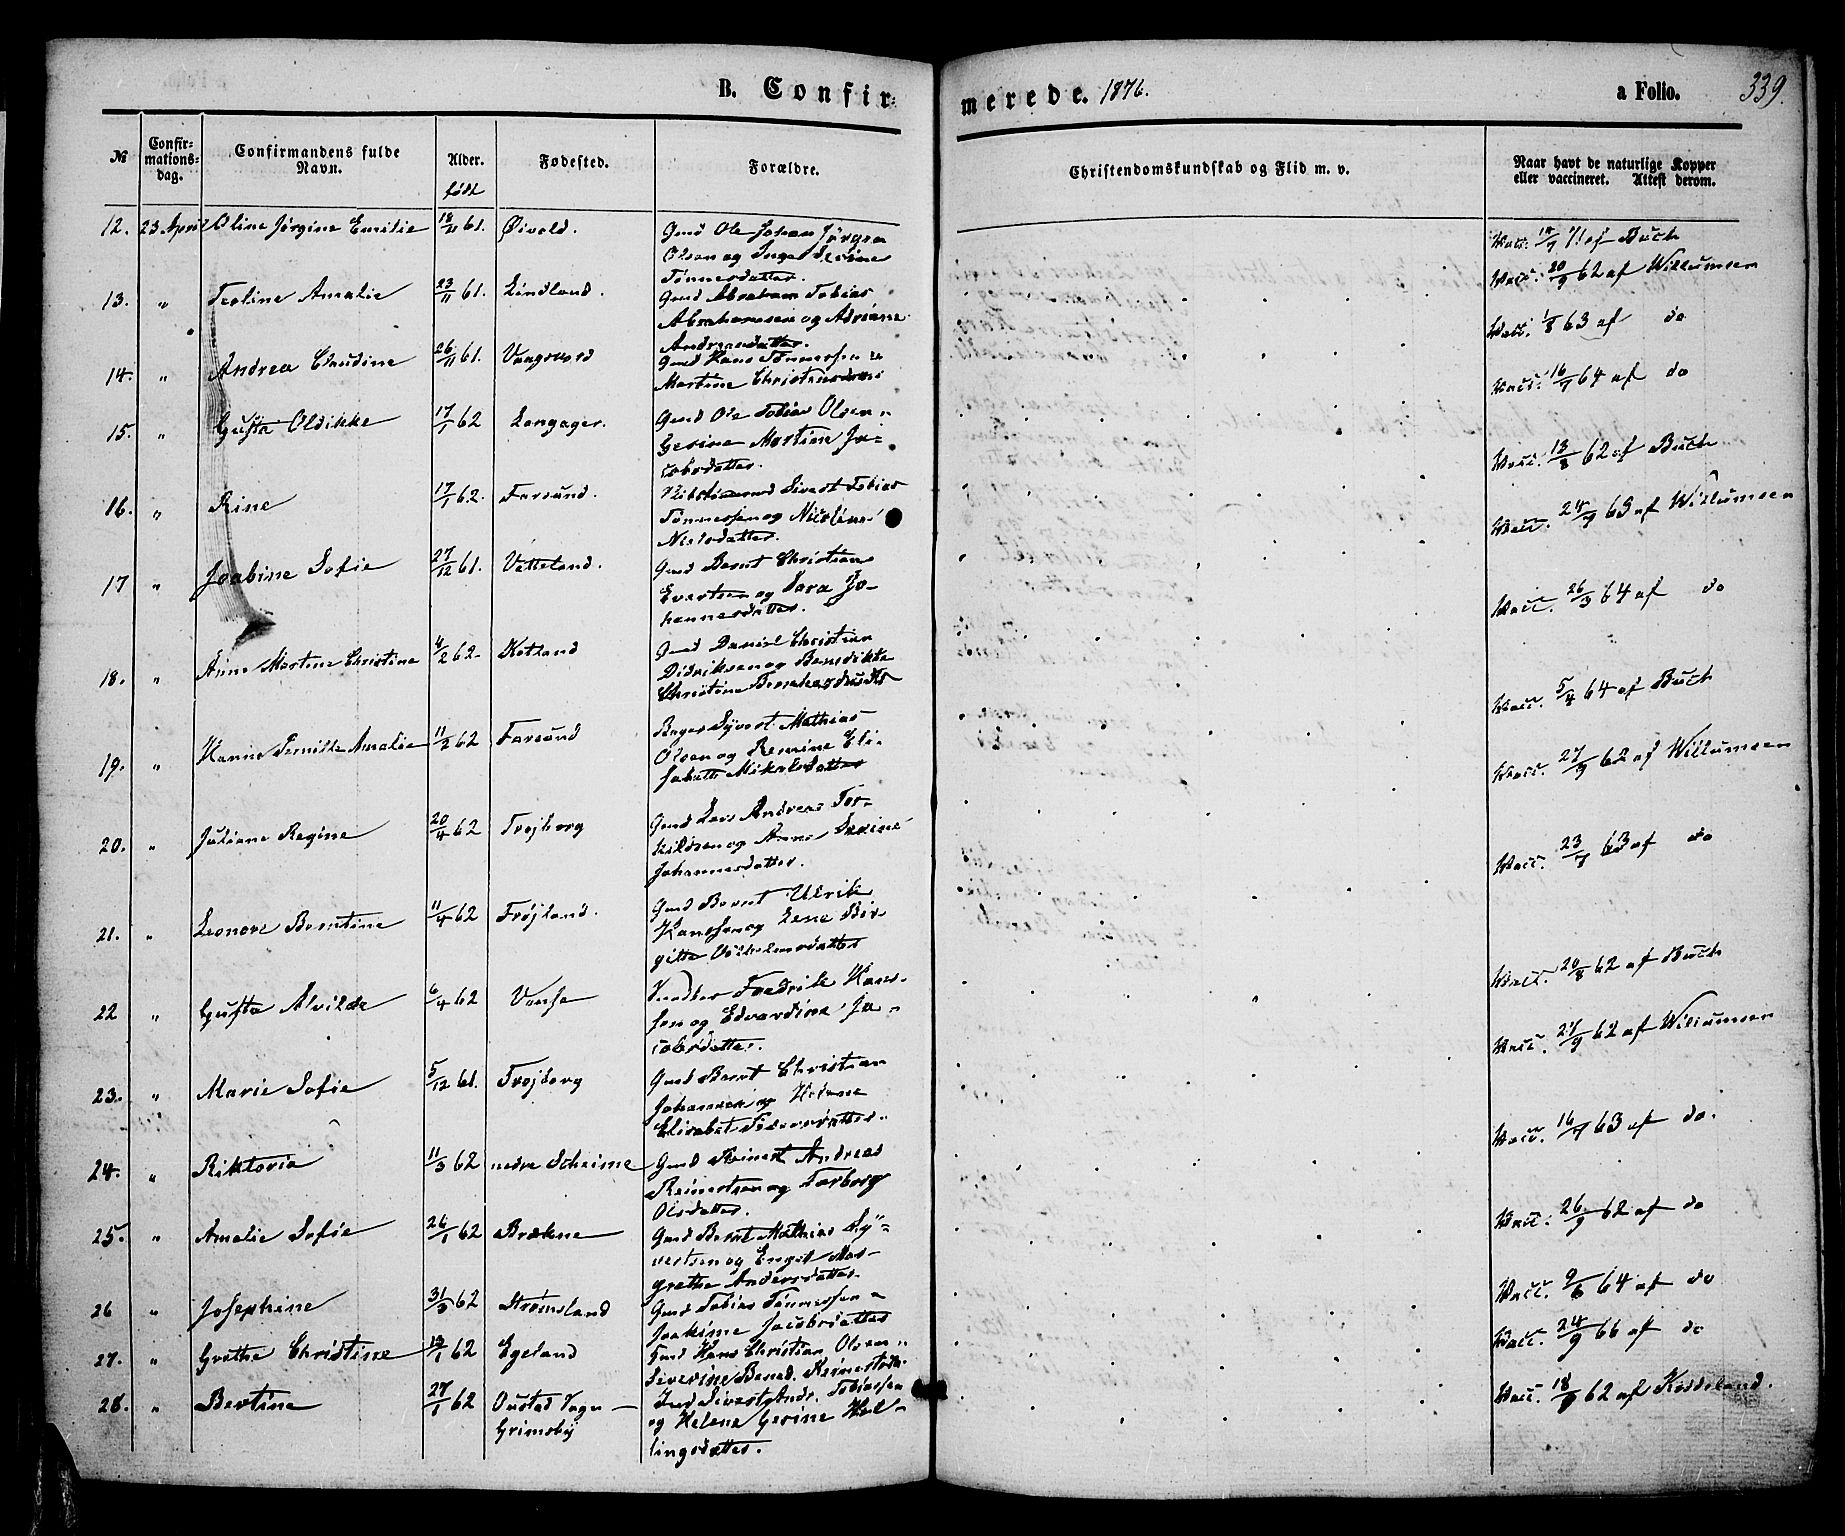 B. Confir-
merede. 1876.
a Folio.
339.
№
Confir-
mations-
dag.
Confirmandens fulde
Navn.
Alder.
født
Fødested.
Forældre.
Christendomskundskab og Flid m. v.
Naar havt de naturlige Kopper
eller vaccineret. Attest derom.
12. 23 April Oline Jørgine Emilie 18/11 61. Øivold. Gmd Ole Johan Jørgen
Olsen og Inger Serine
Tønnesdatter.
Vacc. 14/7 71 af Buch
13. " Teoline Amalie 23/11 61. Lindland. Gmd Abraham Tobias
Abrahamsen og Adriane
Andreasdatter
Vacc. 20/9 62 af Willumsen
14. " Andrea Claudine 26/11 61. Gmd Hans Tønnessen u
Martine Christensdatter
Vacc. 1/8 63 af do
15. " Gusta Oldikke 17/1 62 Langager. Gmd Ole Tobias Olsen "
Gerine Martine Ja-
cobsdatter.
Vacc. 16/7 64 af do
16. " Rine 17/1 62. Farsund. Sivert Tobias
Tønnessen og Nicoline
Nielsdatter.
Vacc. 13/8 62 af Buch
17 " Joabine Sofie 27/12 61. Vatteland. Gmd Bernt Christian
Evertsen og Sara Jo-
hannesdatter.
Vacc. 24/7 63 af Willumsen
18. " Anne Martine Christine 4/2 62. Ketland Gmd Daniel Christian
Didriksen og Benedikte
Christine
Vacc. 26/3 64 af do
19. " Hanne Pernille Amalie 11/2 62 Farsund Syvert Mathias
Olsen og Remine Eli-
sabeth Mikalsdatter
Vacc. 5/4 64 af Buch
20. " Juliane Regine 20/4 62 Trøjborg Gmd Lars Andreas Tor-
kildsen og Anne Serine
Johannesdatter.
Vacc. 27/9 62 af Willumsen
21. " Leonore Berntine 11/4 62 Frøjland. Gmd Bernt Ulrik
Hanssen og Lene Bir-
gitte Vilhelmsdatter
Vacc. 23/7 63 af do
22 " Gusta Alvilde 6/4 62 Vanse Fredrik Hans-
sen og Edvardine Ja-
cobsdatter.
Vacc. 20/8 62 af Buch
23. " Marie Sofie 5/12 61. Trøjborg Gmd Bernt Christian
Johannesen og Helene
Elisabet Pedersdatter.
Vacc. 27/9 62 af Willumsen
24. " Riktoria 11/3 62 nedre Scheime Gmd Reinert Andreas
Reinertsen og Torborg
Olsdatter.
Vacc. 16/7 63 af do.
25. " Amalie Sofie 26/1 62 Brækne Gmd Bernt Mathias Sy-
vertsen og Engel Mar-
grethe Andersdatter
Vacc. 26/9 62 af do
26 " Josephine 31/3 62 Strømsland Gmd Tobias Tønnessen u
Joakime Jacobsdatter
Vacc. 9/6 64 af do
27. " Grethe Christine 13/1 62 Egeland Gmd Hans Christian Olsen "
Severine Bened. Reinertsdtr.
Vacc. 24/9 66 af do
28. " Bertine 27/1 62 Oustad Sogn -
Grimsby
Ind Sivert Andr. Tobiassen
og Helene Gerine Hel-
lingsdatter.
Vacc. 18/9 62 af Keddeland.